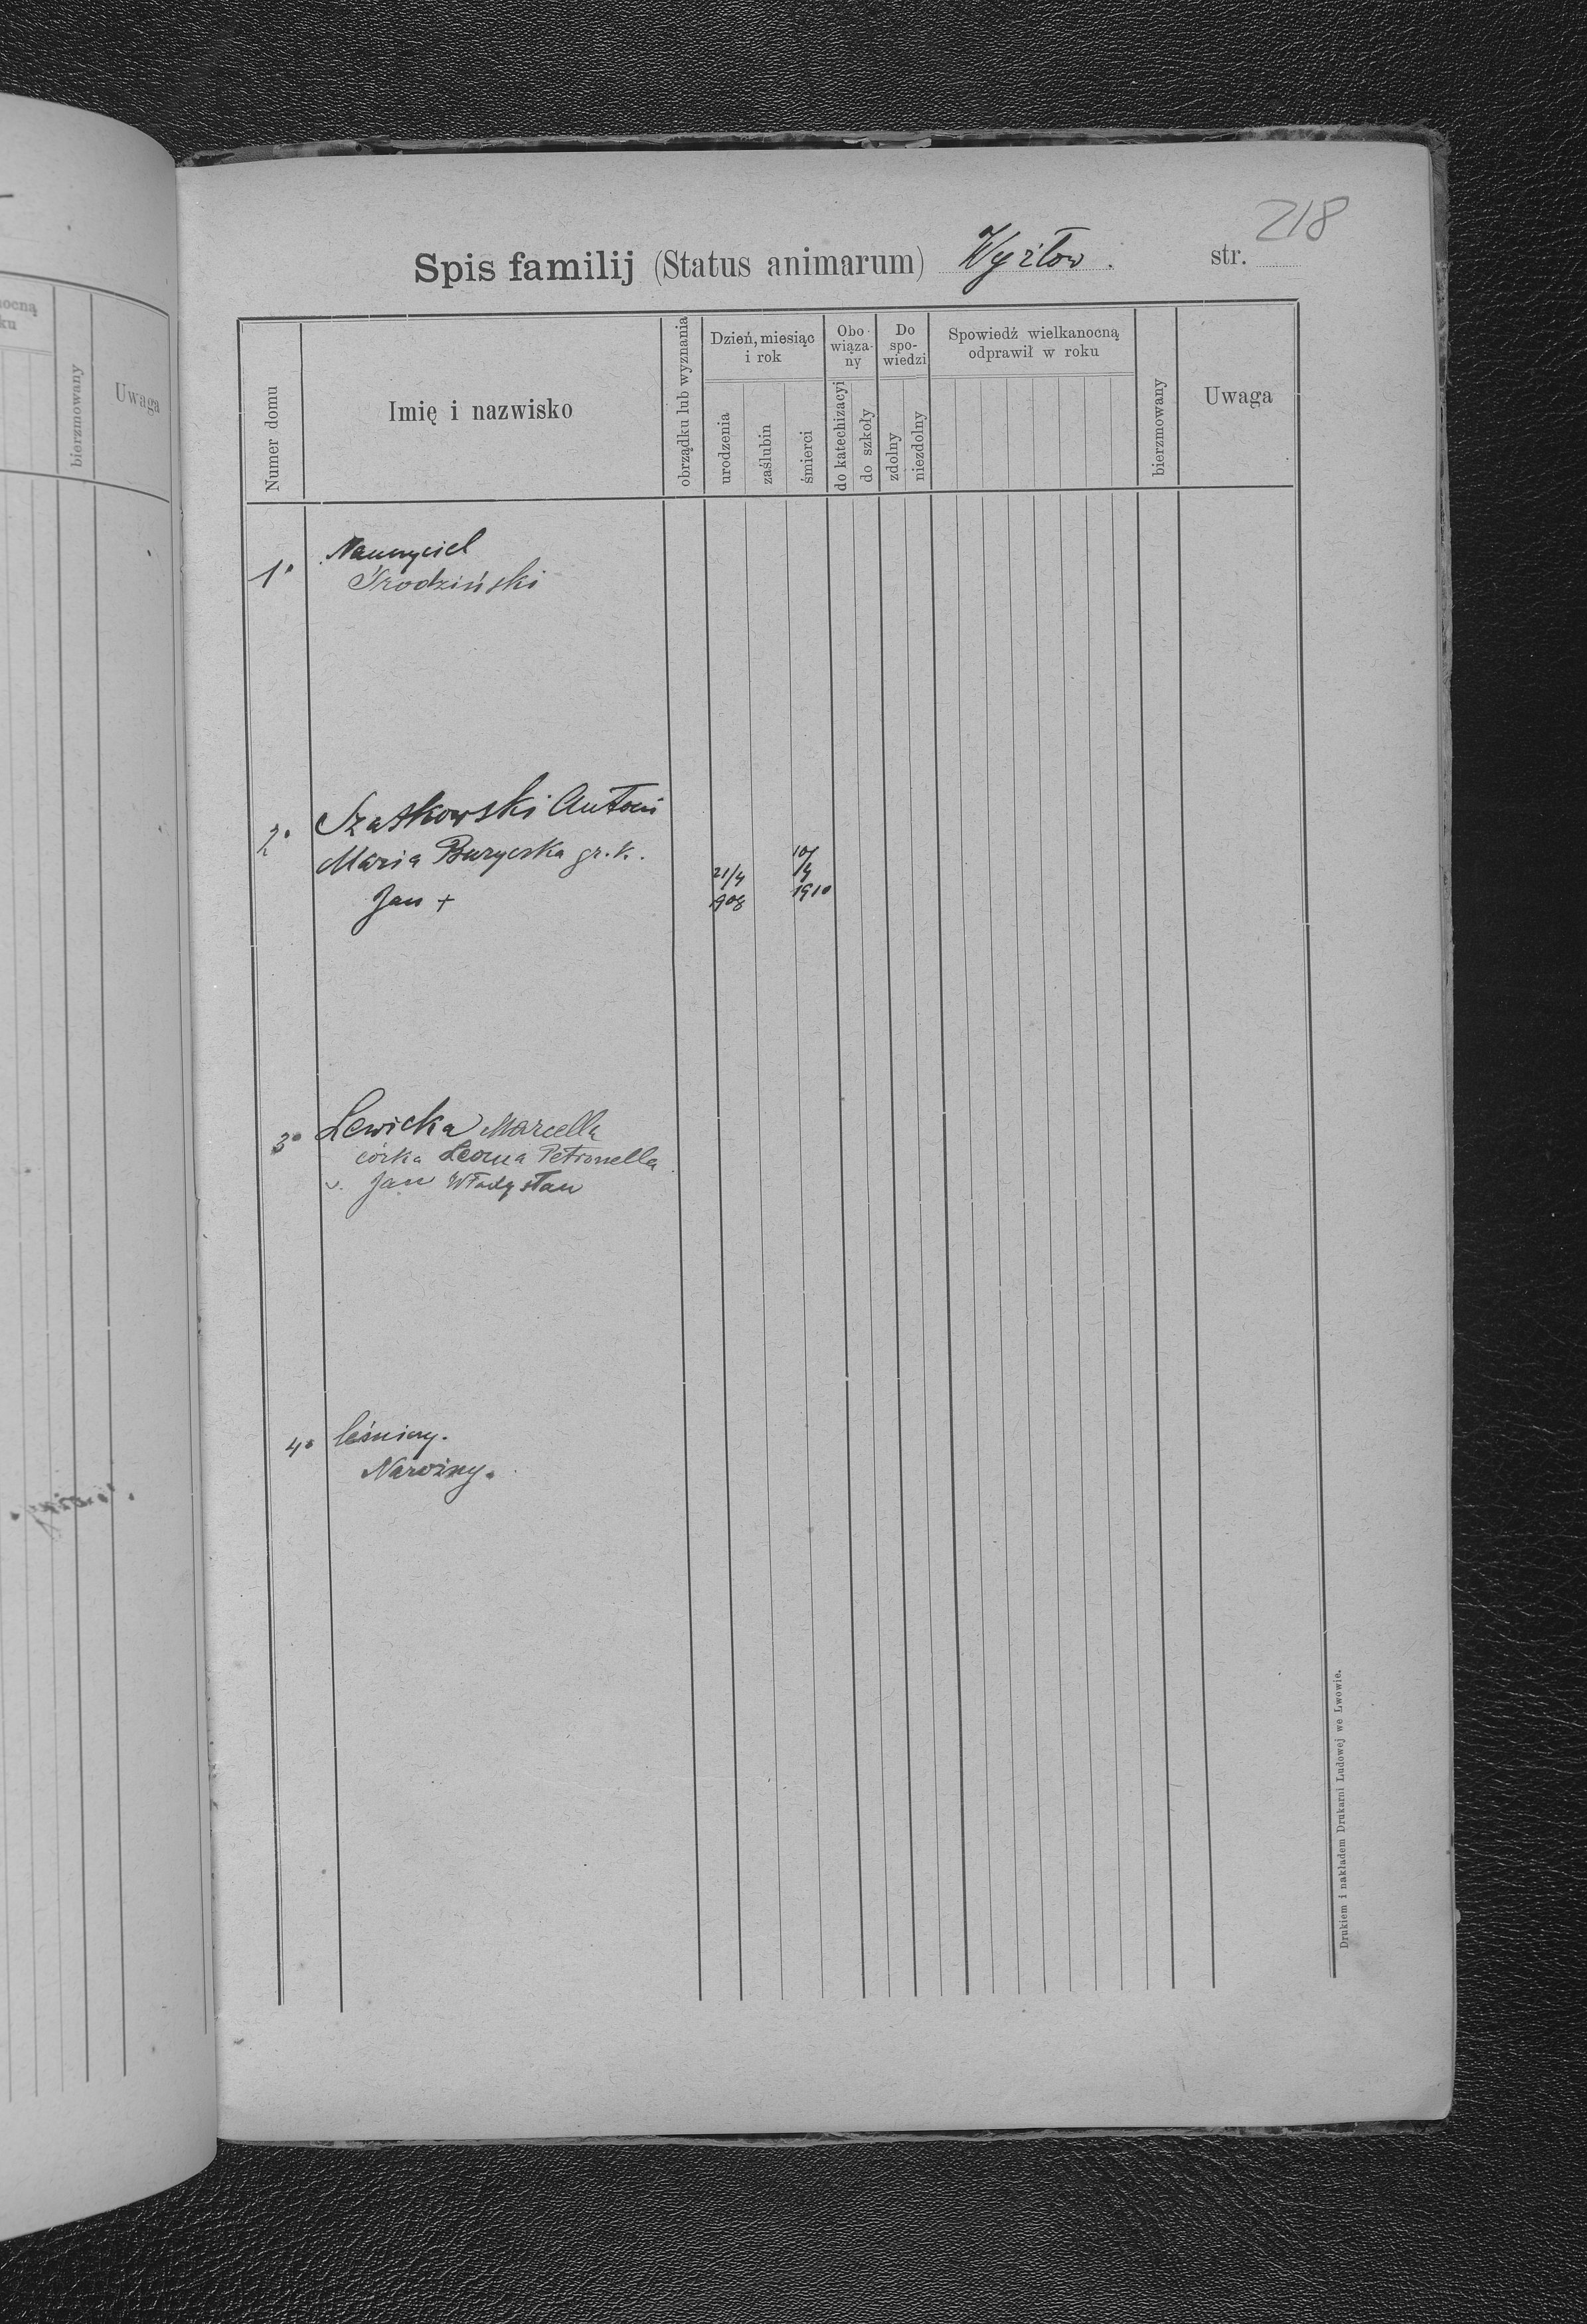 218
Spis familij (Status animarum) Wyżłow.
str.
Numer domu
Imię i nazwisko
obrządku lub wyznania
Dzień, miesiąc
i rok
urodzenia
zaślubin
śmierci
Obo-
wiąza-
ny
do katechizacyi
do szkoły
Do
spo-
wiedzi
zdolny
niezdolny
Spowiedź wielkanocną
odprawił w roku
bierzmowany
Uwaga
1º Nauczyciel
Środziński
2º Szatkowski Antoni
Maria Buryerska gr. k.
Jan +
21/4
908
10/
/4
1910
3º Lewicka Marcella
córka Leona Petronella
v. Jan Władysław
4º leśniczy.
Narożny.
Drukiem i nakładem Drukarni Ludowej we Lwowie.
ocną
ku
bierzmowany
Uwaga